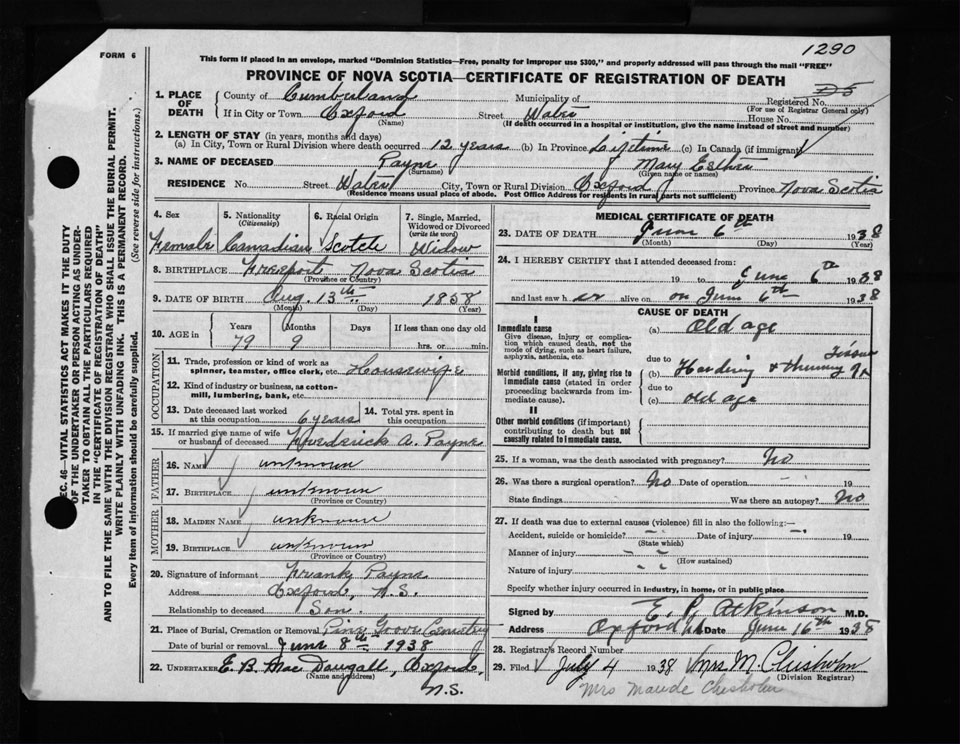 1290
FORM 6
This form if placed in an envelope, marked "Dominion Statistics—Free, penalty for improper use $300," and properly addressed will pass through the mail "FREE"
PROVINCE OF NOVA SCOTIA—CERTIFICATE OF REGISTRATION OF DEATH
1. PLACE OF DEATH
County of Cumberland Municipality of Registered No.
(For use of Registrar General only)
If in City or Town Oxford Street Water House No.
(Name) (If death occurred in a hospital or institution, give the name instead of street and number)
2. LENGTH OF STAY (in years, months and days)
(a) In City, Town or Rural Division where death occurred 12 years (b) In Province Lifetime (c) In Canada (if immigrant)
3. NAME OF DECEASED Payne Mary Esther
(Surname) (Given name or names)
RESIDENCE No. Street Water City, Town or Rural Division Oxford Province Nova Scotia
(Residence means usual place of abode. Post Office Address for residents in rural parts not sufficient)
4. Sex
Female
5. Nationality
(Citizenship)
Canadian
6. Racial Origin
Scotch
7. Single, Married, Widowed or Divorced
(write the word)
Widow
8. BIRTHPLACE Freeport Nova Scotia
(Province or Country)
9. DATE OF BIRTH Aug. 13th 1858
(Month) (Day) (Year)
10. AGE in
Years Months Days If less than one day old
79 9 hrs. or min.
OCCUPATION
11. Trade, profession or kind of work as spinner, teamster, office clerk, etc. Housewife
12. Kind of industry or business, as cotton-mill, lumbering, bank, etc.
13. Date deceased last worked at this occupation 6 years
14. Total yrs. spent in this occupation
15. If married give name of wife or husband of deceased Frederick A. Payne
FATHER
16. Name unknown
17. Birthplace unknown
(Province or Country)
MOTHER
18. Maiden Name unknown
19. Birthplace unknown
(Province or Country)
20. Signature of informant Frank Payne
Address Oxford, N.S.
Relationship to deceased Son.
21. Place of Burial, Cremation or Removal Pine Grove Cemetery
Date of burial or removal June 8th 1938
22. UNDERTAKER E. B. Mac Dougall, Oxford,
(Name and address)
N.S.
MEDICAL CERTIFICATE OF DEATH
23. DATE OF DEATH June 6th 1938
(Month) (Day) (Year)
24. I HEREBY CERTIFY that I attended deceased from:
19 to June 6th 1938
and last saw h er alive on June 6th 1938
CAUSE OF DEATH
I
Immediate cause
Give disease, injury or complication which caused death, not the mode of dying, such as heart failure, asphyxia, asthenia, etc.
(a) Old age
due to
Morbid conditions, if any, giving rise to immediate cause (stated in order proceeding backwards from immediate cause).
(b) Hardening
due to
(c) old age
II
Other morbid conditions (if important) contributing to death but not causally related to immediate cause.
25. If a woman, was the death associated with pregnancy? No
26. Was there a surgical operation? No Date of operation 19
State findings Was there an autopsy? No
27. If death was due to external causes (violence) fill in also the following:—
Accident, suicide or homicide? Date of injury 19
(State which)
Manner of injury
(How sustained)
Nature of injury
Specify whether injury occurred in industry, in home, or in public place
Signed by E. P. Atkinson M.D.
Address Oxford NS Date June 16th 1938
28. Registrar's Record Number
29. Filed July 4 1938 Mrs M. Chisholm
(Division Registrar)
Mrs Maude Chisholm
SEC. 46—VITAL STATISTICS ACT MAKES IT THE DUTY
OF THE UNDERTAKER OR PERSON ACTING AS UNDER-
TAKER TO OBTAIN ALL THE PARTICULARS REQUIRED
IN THE "CERTIFICATE OF REGISTRATION OF DEATH"
AND TO FILE THE SAME WITH THE DIVISION REGISTRAR WHO SHALL ISSUE THE BURIAL PERMIT.
WRITE PLAINLY WITH UNFADING INK. THIS IS A PERMANENT RECORD.
Every item of information should be carefully supplied. (See reverse side for instructions.)